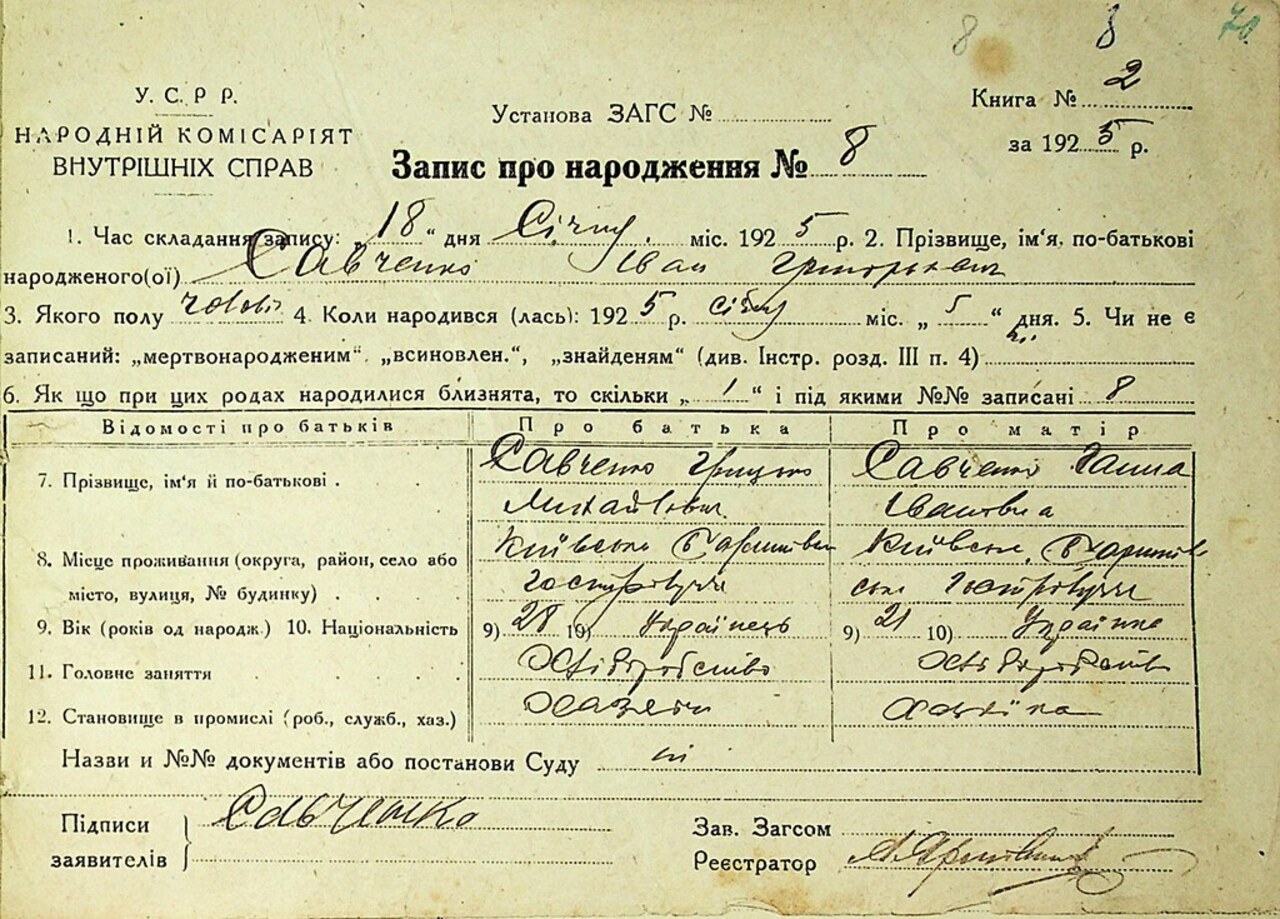 8 8 70
У. С. Р Р.
НАРОДНІЙ КОМІСАРІЯТ
ВНУТРІШНІХ СПРАВ
Установа ЗАГС №
Книга № 2
за 1925 р.
Запис про народження № 8
1. Час складання запису: „18“ дня Січня міс. 1925 р. 2. Прізвище, ім‘я, по-батькові
народженого(ої) Савченко Іван Григорьович
3. Якого полу чоловіч 4. Коли народився (лась): 1925 р. січня міс. „5“ дня. 5. Чи не є
записаний: „мертвонародженим“, „всиновлен.“, „знайденям“ (див. Інстр. розд. III п. 4) ні
6. Як що при цих родах народилися близнята, то скільки „1“ і під якими №№ записані 8
Відомості про батьків Про батька Про матір
7. Прізвище, ім‘я й по-батькові . Савченко Грицько Михайлович Савченко Ганна Івановна
8. Місце проживання (округа, район, село або Київська Баришівськ Київська, Баришів
місто, вулиця, № будинку) . Гостролуччя ська Гостролуччя
9. Вік (років од народж.) 10. Національність 9) 28 10) Українець 9) 21 10) Українка
11. Головне заняття Хліборобство Хліборобство
12. Становище в промислі (роб., служб., хаз.) Хазяїн Хазяїка
Назви и №№ документів або постанови Суду ні
Підписи Савченко
заявителів
Зав. Загсом
Реєстратор